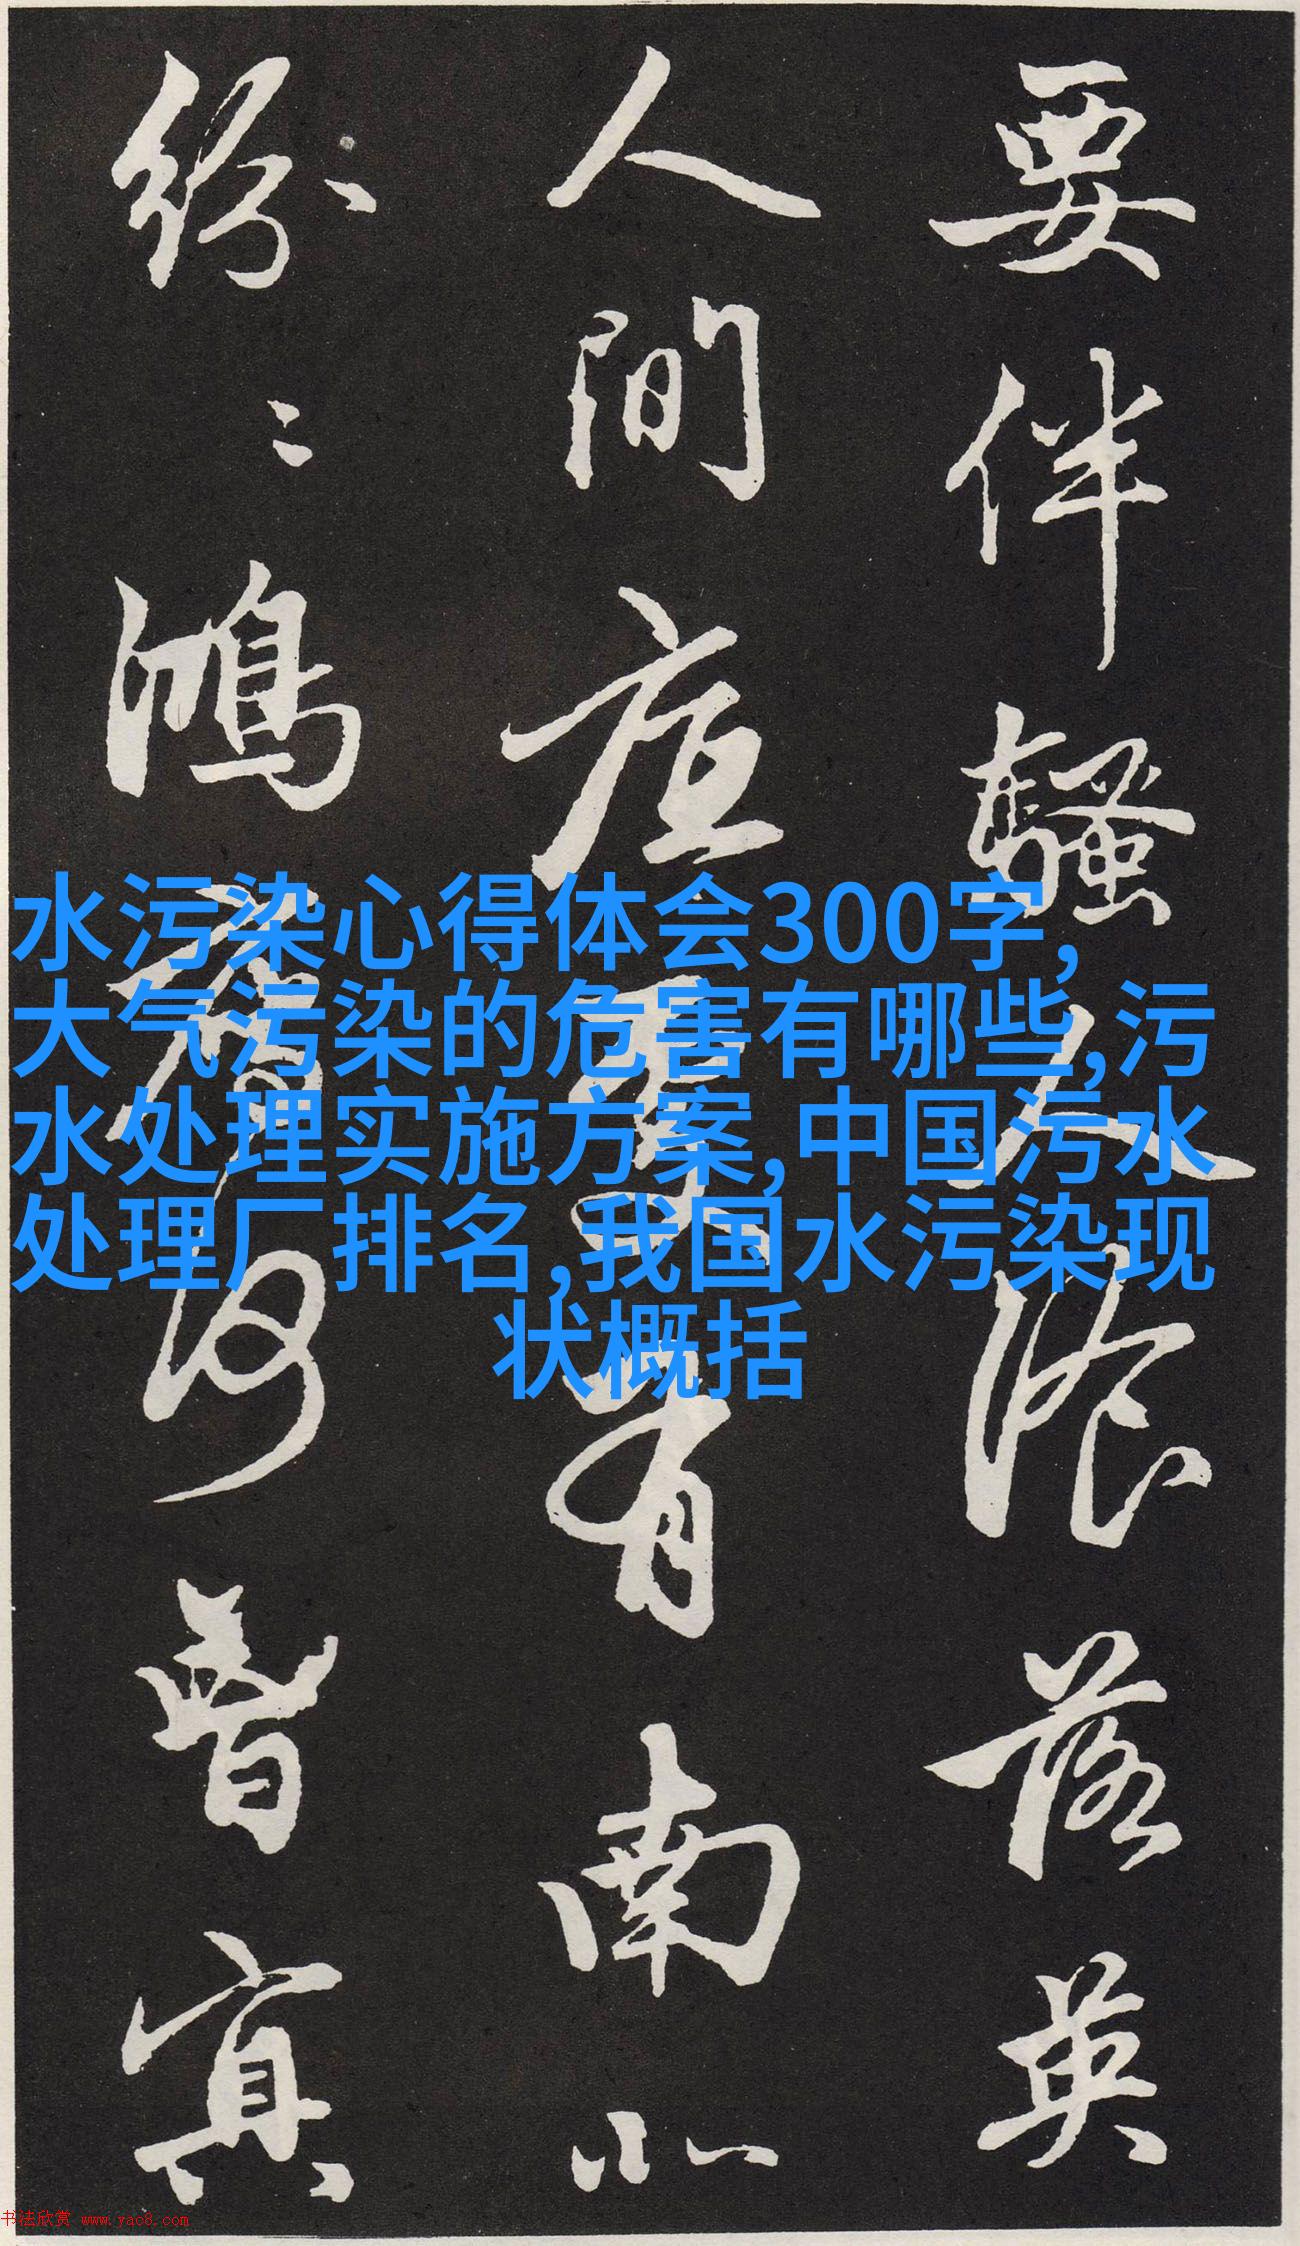 要伴騷人飡落英
人間底處有南北
紛〻鴻鴈何曾冥
水污染心得体会300字,
大气污染的危害有哪些,污
水处理实施方案,中国污水
处理厂排名,我国水污染现
状概括
书法欣赏 www.yac8.com